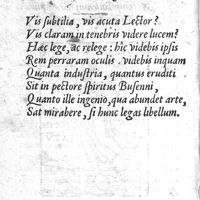 Vis subtilia, vis acuta Lector?
Vis claram in tenebris videre lucem?
Hæc lege, ac relege: hîc videbis ipsis
Rem perraram oculis. videbis inquam
Quanta industria, quantus eruditi
Sit in pectore spiritus Busenni,
Quanto ille ingenio, qua abundet arte,
Sat mirabere, si hunc legas libellum.